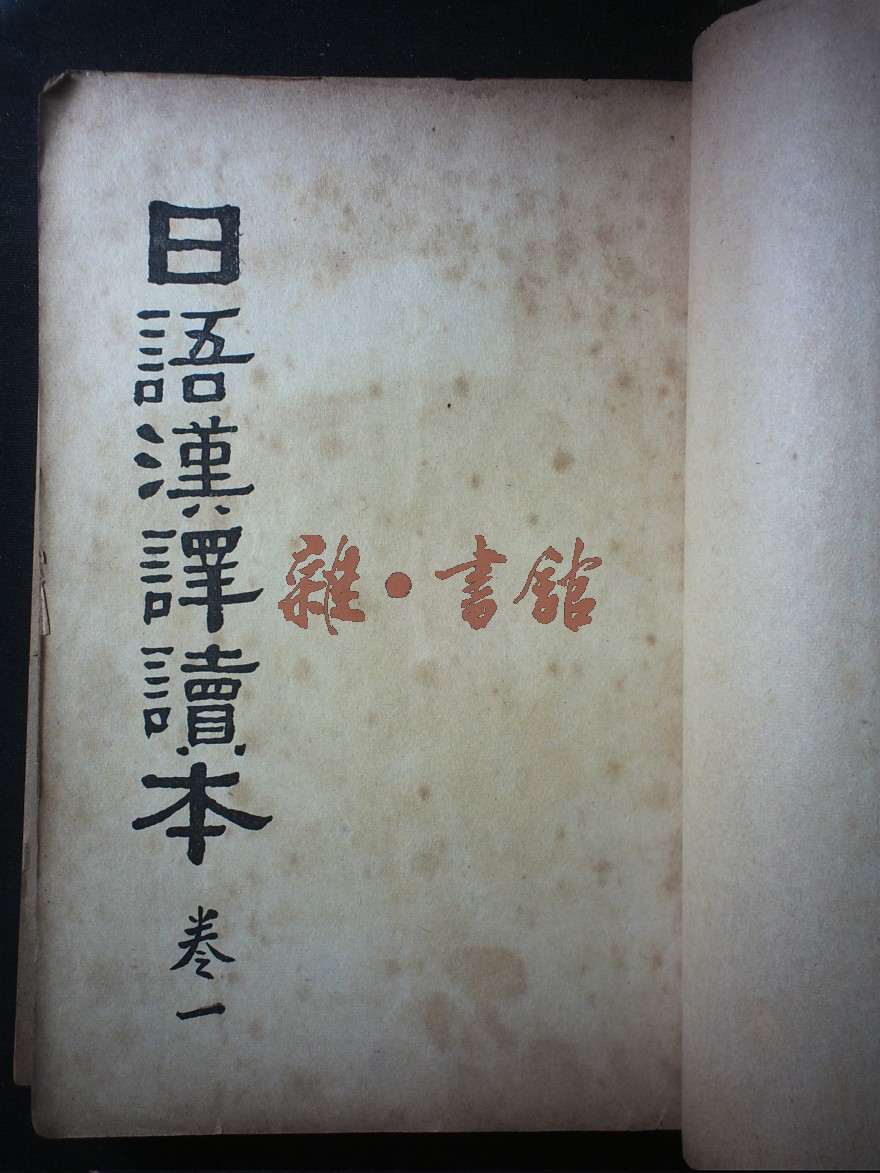 日語漢譯讀本
卷一
雜·書館